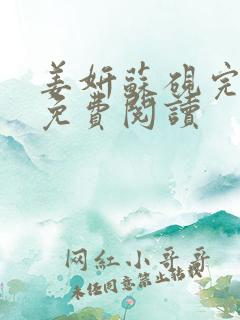 姜妍蘇硯完
免費閱讀
网红小哥哥
未经同意禁止转载